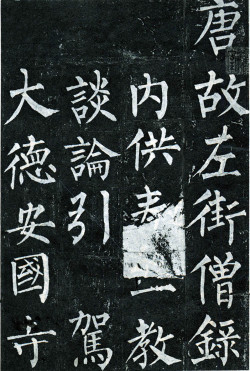 唐故左街僧錄
內供奉一教
談論引駕
大德安國寺